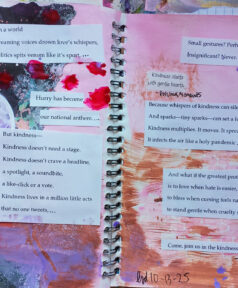 n a world
reaming voices drown love's whispers,
litics spits venom like it's sport, ...
Hurry has become
our national anthem ...
But kindness—
Kindness doesn't need a stage.
Kindness doesn't crave a headline,
a spotlight, a soundbite,
a like-click or a vote.
Kindness lives in a million little acts
that no one tweets, ...
Small gestures? Perh
Insignificant? Never.
Kindness starts
with gentle hearts,
Because whispers of kindness can sile
And sparks—tiny sparks—can set a
Kindness multiplies. It moves. It sprea
It infects the air like a holy pandemic
And what if the greatest prote
is to love when hate is easier,
to bless when cursing feels na
to stand gently when cruelty
Come, join us in the kindness
10-13-25